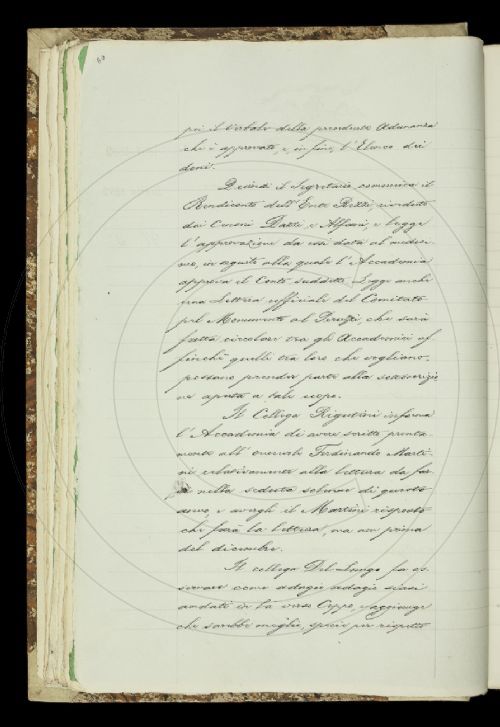 60
poi il Verbale della precedente Adunanza
che è approvato, e, in fine, l'Elenco dei
doni.
Quindi il Segretario comunica il
Rendiconto dell'Ente Rezzi, riveduto
dai Censori Dazzi e Alfani, e legge
l'approvazione da essi data al medesi-
mo, in seguito alla quale l'Accademia
approva il Conto suddetto. Legge anche
una lettera ufficiale del Comitato
pel Monumento al Peruzzi, che sarà
fatta circolare tra gli Accademici af-
finchè quelli tra loro che vogliano,
possano prender parte alla soscrizio
ne aperta a tale scopo.
Il Collega Rigutini informa
l'Accademia di avere scritto pronta-
mente all'onorevole Ferdinando Marti-
ni relativamente alla lettura da far
si nella seduta solenne di questo
anno, e avergli il Martini risposto
che farà la lettura, ma non prima
del dicembre.
Il collega Del-Lungo fa os-
servare come adagio adagio siasi
andati in là verso Ceppo, e aggiunge
che sarebbe meglio, specie per rispetto